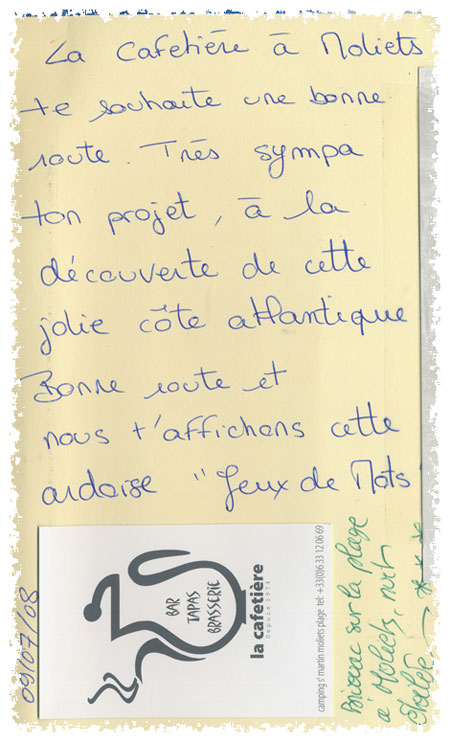 La Cafetière à Moliets
te souhaite une bonne
route. Très sympa
ton projet, à la
découverte de cette
jolie côte atlantique
Bonne route et
nous t'affichons cette
ardoise "Jeux de Mots"
09/07/08
BAR
TAPAS
BRASSERIE
la cafetière
Depuis 1974
camping s' martin moliets plage tel: +33(0)6 33 12 06 69
Bivouac sur la plage
à Moliets, nuit
étoilée